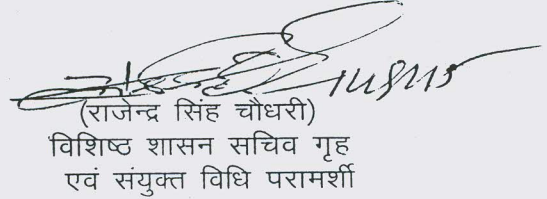 (राजेन्द्र सिंह चौधरी)
विशिष्ठ शासन सचिव गृह
एवं संयुक्त विधि परामर्शी